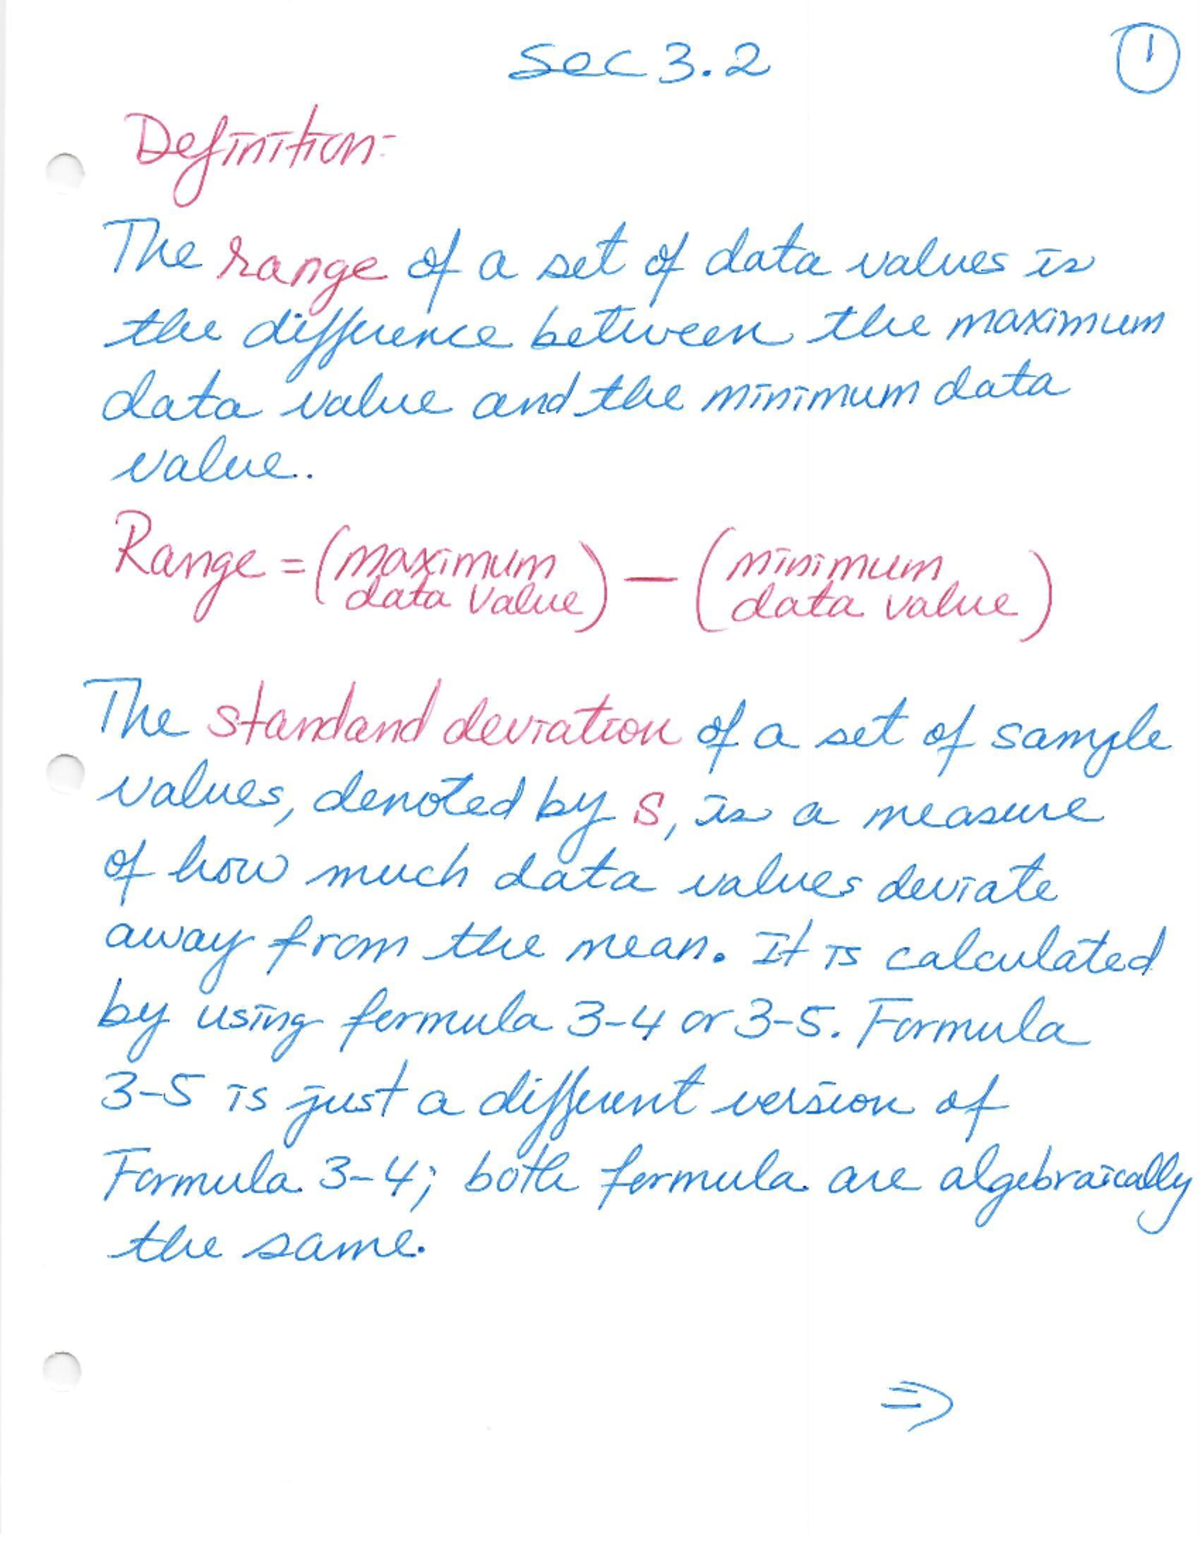 Sec 3.2
1
Definition:
The range of a set of data values is
the difference between the maximum
data value and the minimum data
value.
Range = (maximum data value) — (minimum data value)
The standard deviation of a set of sample
values, denoted by S, is a measure
of how much data values deviate
away from the mean. It is calculated
by using formula 3-4 or 3-5. Formula
3-5 is just a different version of
Formula 3-4; both formula are algebraically
the same.
⇒